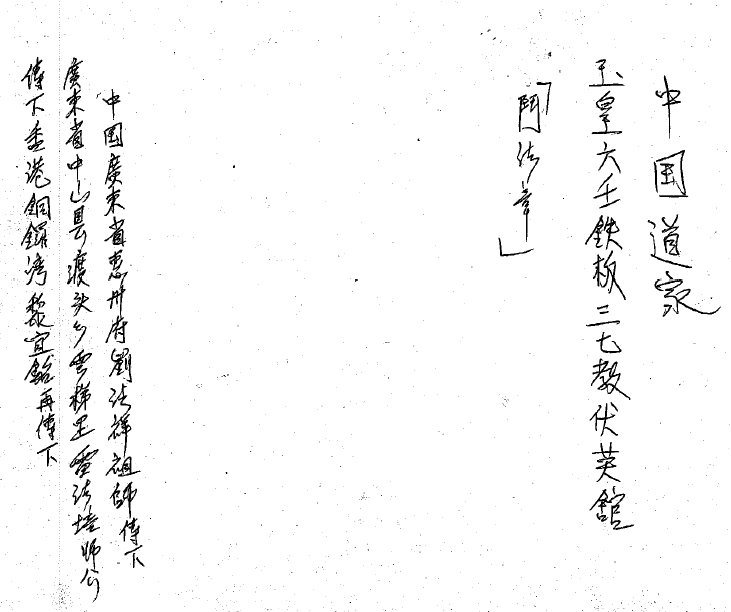 中国道家
玉皇六壬鉄板三七教伏英舘
「鬥法章」
中国廣東省惠州府劉法祥祖師傳下
廣東省中山县渡头乡雲梯里雷法培師公
傳下香港銅鑼湾黎宜銘再傳下